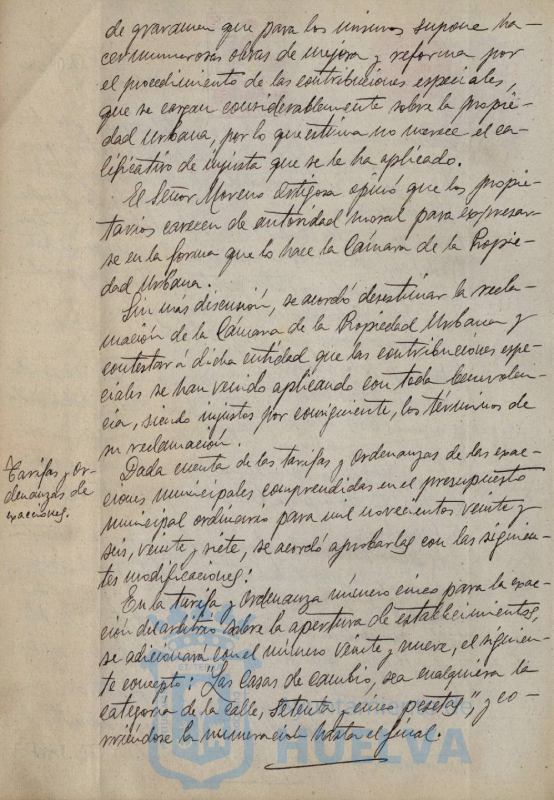 de gravamen que para los mismos supone ha-
cer numerosas obras de mejora y reforma por
el procedimiento de las contribuciones especiales,
que se cargan considerablemente sobre la propie-
dad Urbana, por lo que estima no merece el ca-
lificativo de injusta que se le ha aplicado.
El Señor Moreno Ortigosa opinó que los propie-
tarios carecen de autoridad moral para expresar-
se en la forma que lo hace la Cámara de la Propie-
dad Urbana.
Sin más discusión, se acordó desestimar la recla-
mación de la Cámara de la Propiedad Urbana y
contestar á dicha entidad que las contribuciones espe-
ciales se han venido aplicando con toda benevolen-
cia, siendo injustos por consiguiente, los términos de
su reclamación.
Tarifas y or-
denanzas de
exacciones.
Dada cuenta de las tarifas y ordenanzas de las exac-
ciones municipales comprendidas en el presupuesto
municipal ordinario para mil novecientos veinte y
seis, veinte y siete, se acordó aprobarlas con las siguien-
tes modificaciones:
En la tarifa y ordenanza número cinco para la exac-
ción del arbitrio sobre la apertura de establecimientos,
se adicionará con el número veinte y nueve, el siguien-
te concepto: "Las Casas de Cambio, sea cualquiera la
categoría de la calle, setenta y cinco pesetas", y co-
rriéndose la numeración hasta el final.
HUELVA